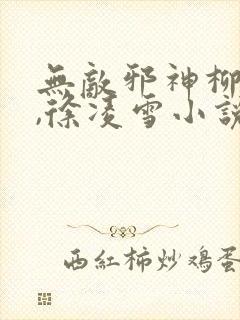 無敵邪神柳
,徐凌雪小說
西紅柿炒鸡蛋